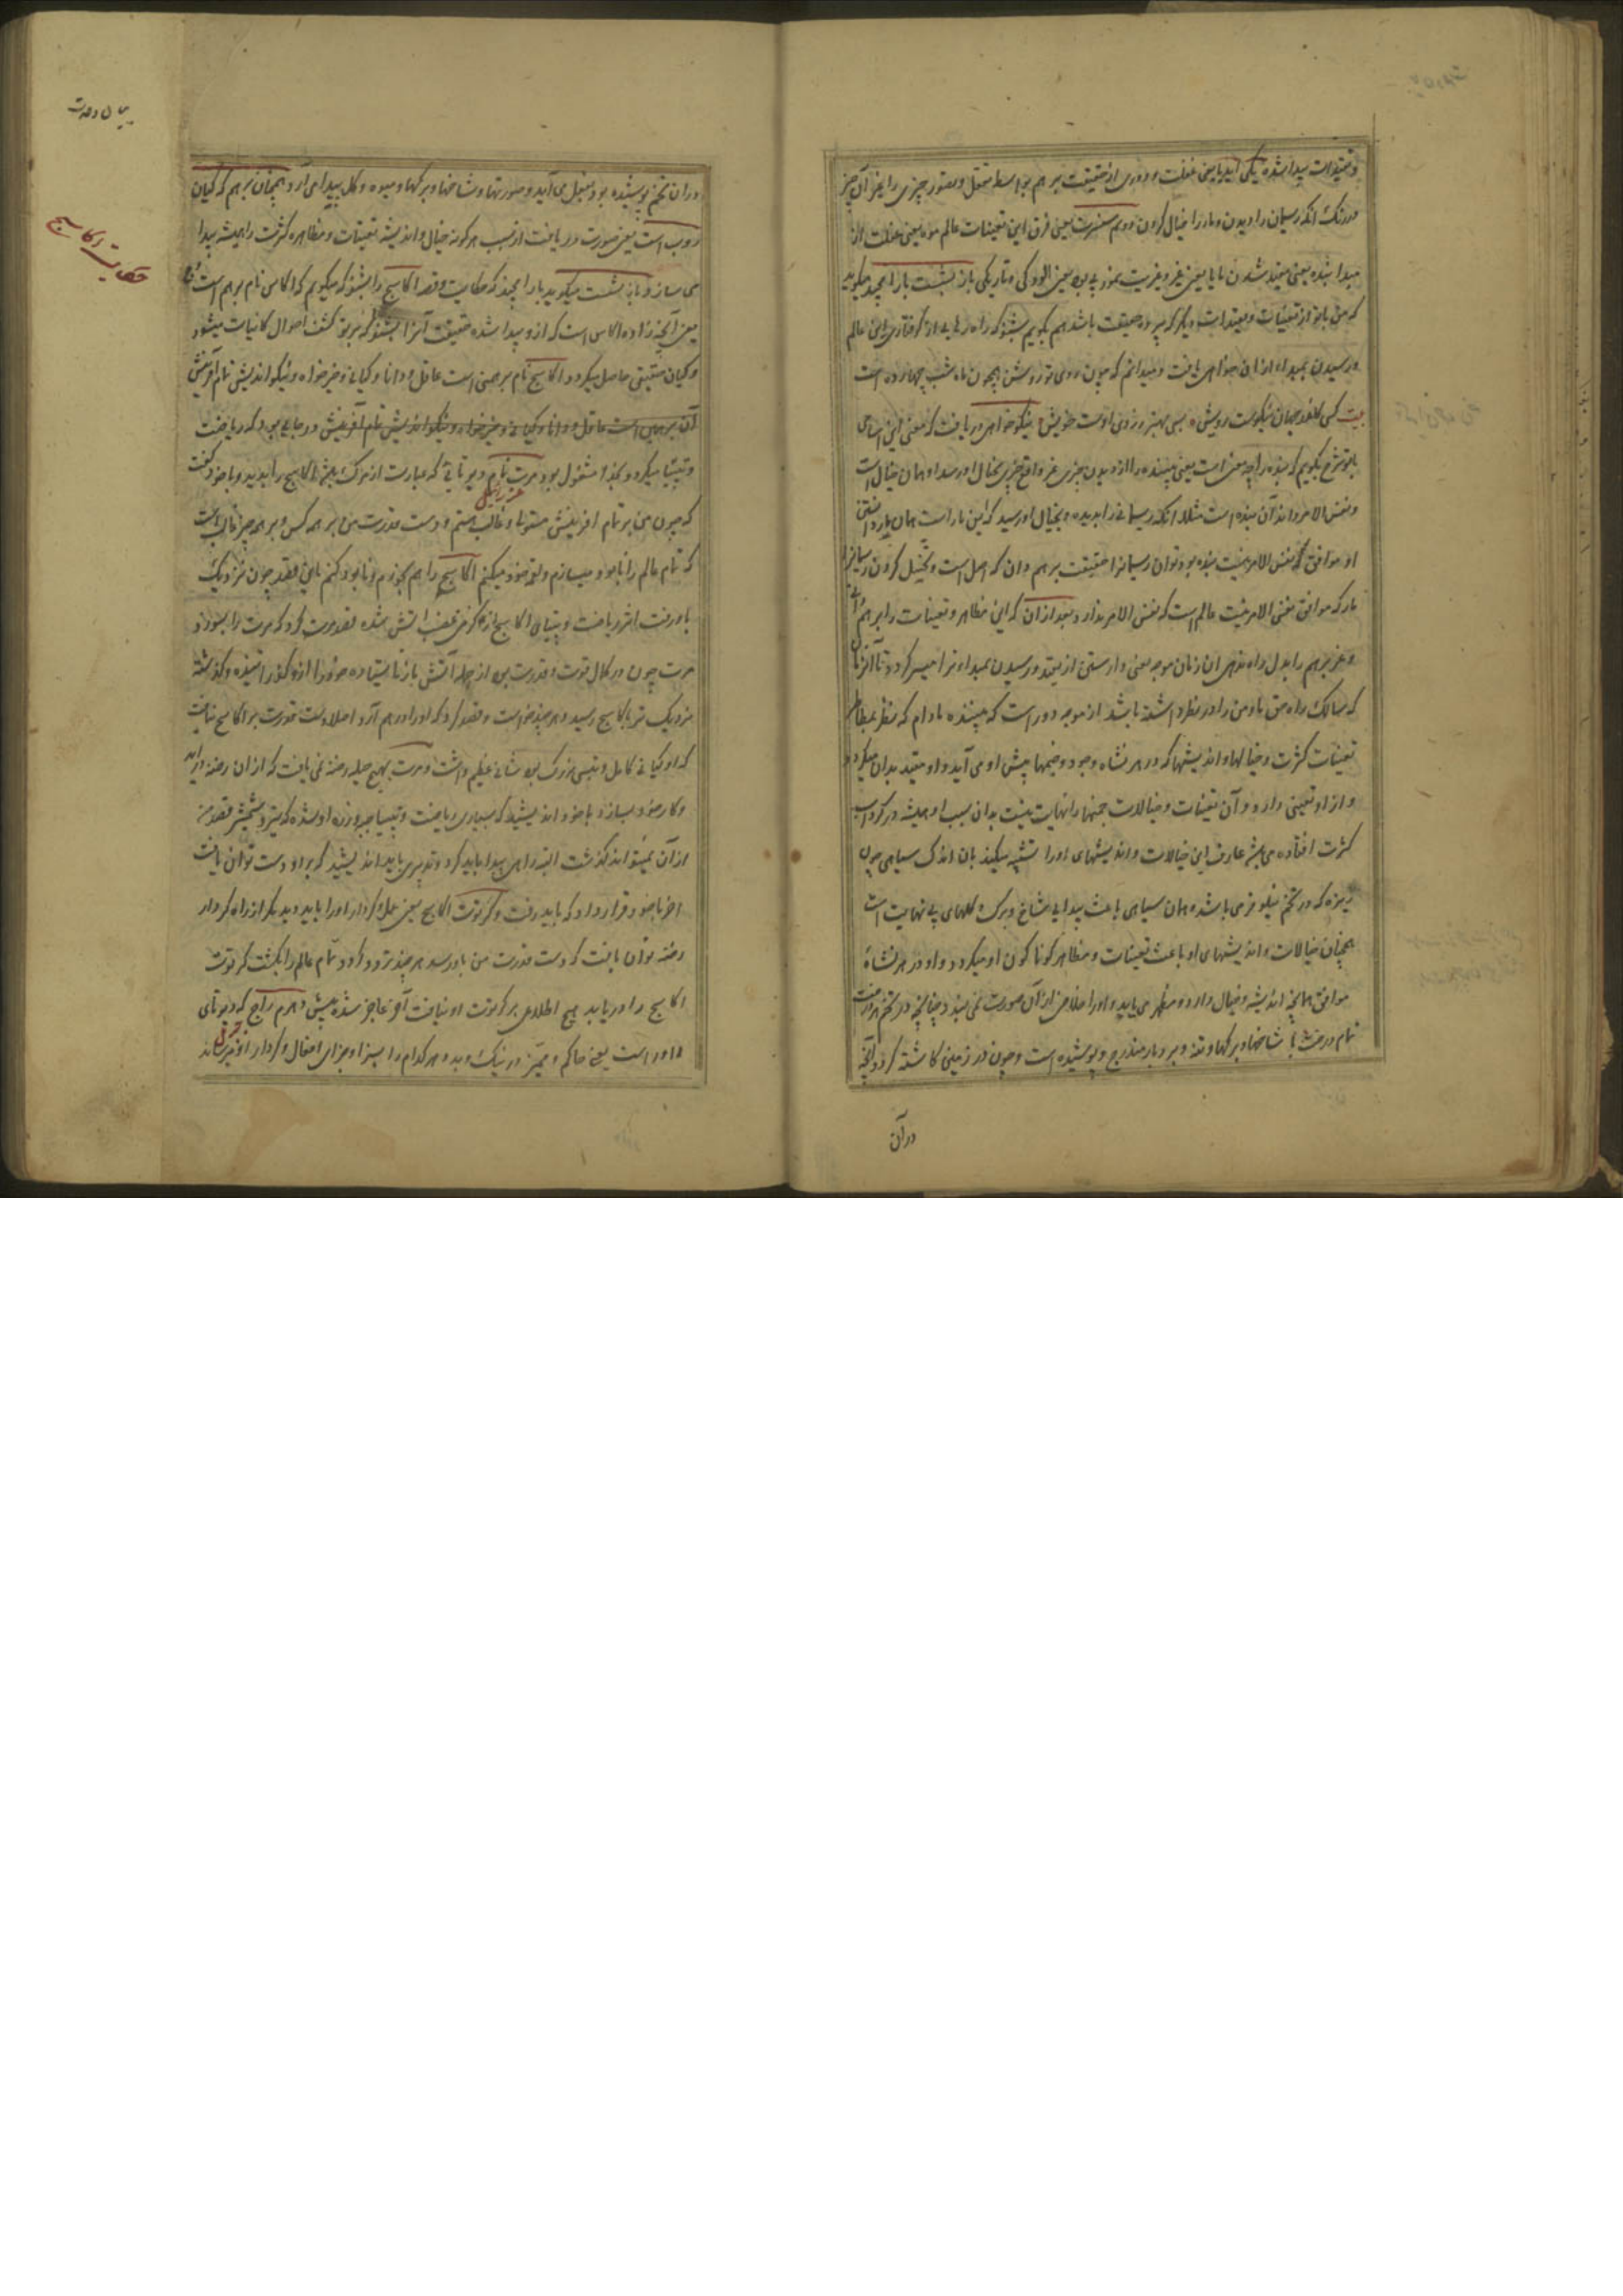 و تقیدات پیدا شده یکی ابدیا یعنی غفلت و دوری از حقیقت برهم بواسطه تعقل و تصور چیزی را بغیر آن چیز
دیدن و مار را خیال کردن دویم یعنی فرق این تعینات عالم بوده یعنی غفلت
مبدا شده یعنی مقید شدن مایا یعنی غیر و غیریت یعنی الودکی و تاریکی باز بشست بارامچند میکوید
که من باتو از تعینات و تقیدات دیکر که بی حقیقت باشد هم بکویم بشنو که راه رهایی از کرفتاری این عالم
و رسیدن بمبداء ازان خواهی یافت و میدانم که چون روی تو روشن همچون ماه شب چهارده است
بیت کسی کاندر جهان نیکوست رویش بسی بهتر ز روی اوست خویش نیکو خواهی دریافت که معنی این اسامی
باتو شرح بکویم که بنده را چه معنی است یعنی بیننده را از دیدن چیزی غیر واقع چیزی بخیال او رسد او همان خیال است
و نفس الامر داند آن بنده است مثلا انکه ریسمانی را بدیده و بخیال او رسید که این مار است همان مار دانستن
او موافق نفس الامر نیست بنده بود و توان ریسمانرا حقیقت برهم دان که اصل است و تخیل کردن ریسمانرا
مار که موافق نفس الامر نیست عالم است که نفس الامر ندارد بعد ازان که این مظاهر و تعینات را برهم
و غیر برهم را بدل راه ندهی ان زمان موجه یعنی وارستن از تقید و رسیدن بمبداء ترا میسر کردد تا آنزمان
که سالک راه حق تا و من را در نظر داشته باشد از موجه دور است که بیننده مادام که نظر بمظاهر
تعینات کثرت و خیالها و اندیشها که در هر نشاء وجود و جنمها پیش او می آید و او مقید بدان میکردد
و از او تعینی دارد و آن تعینات و خیالات جنمها را نهایت نیست بدان سبب او همیشه در کرداب
کثرت افتاده می باشد عارف این خیالات و اندیشهای او را تشبیه میکند بان اندک سیاهی چون
ریزه که در تخم نیلوفر می باشد همان سیاهی باعث پیدایی شاخ و برک و کلهای بی نهایت است
همچنان خیالات و اندیشهای او باعث تعینات و مظاهر کوناکون او میکردد و او در هر نشاة
موافق همانچه اندیشه و خیال دارد و مظهر می یابد و او را خلاص از آن صورت نمی بندد چنانچه در تخم هر درخت
تمام درخت با شاخها و برکها و تنه و بر و بار مندرج و پوشیده است و چون در زمین کاشته کردد آنچه
در آن
بیان وحدت
حکایت کاسج
دران تخم پوشیده بود بفعل می آید و صورتها و شاخها و برکها و میوه و کل پیدا می آرد همچنان برهم که کیان
روپ است یعنی صورت دریافت از سبب هر کونه خیال و اندیشه تعینات و مظاهره کثرت را همیشه پیدا
می سازد باز بشست میکوید بارامچند که حکایت و قصه اکاسج را بشنو که میکویم که اکاس نام برهم است
یعنی آنچه زاده اکاس است که ازو پیدا شده حقیقت آنرا بشنو که بر تو کشف احوال کاینات میشود
و کیان حقیقی حاصل میکردد اکاسج نام برهمنی است عاقل و دانا و کیانی و خیرخواه و نیکو اندیش تمام آفرینش
آن برهمن است عاقل و دانا و کیانی و خیرخواه و نیکو اندیش تمام آفرینش در جایی بود که ریاضت
و تپسیا میکرد و بخدا مشغول بود مرت نام دیوتایی که عبارت از مرک باشد اکاسج را بدید و با خود کفت
عزرائیل
که چون من بر تمام افرینش مستولی و غالب هستم و دست قدرت من بر همه کس و بر همه چیز غالب است
که تمام عالم را نابود میسازم و لقمه خود میکنم اکاسج را هم بخورم و نابود کنم باین قصد چون نزدیک
باو رفت اثر ریاضت و تپسیای اکاسج از کرمی غضب اتش شده قصد مرت کرد که مرت را بسوزد
مرت چون در کمال قوت و قدرت بود از حمله آتش باز نایستاده خود را ازو کذرانیده و کذشته
نزدیک تر باکاسج رسید و هر چند خواست و قصد کرد که او را درهم آرد اصلا دست قدرت بر اکاسج نیافت
که او کیانی کامل و تپسی بزرک بود شانی عظیم داشت و مرت بهیچ حیله رخنه نمی یافت که از ان رخنه درآید
و کار خود بسازد با خود اندیشید که بسیاری ریاضت و تپسیا جبه و زره او شده که تیر و شمشیر قصد من
از آن نمیتواند کذشت البته راهی پیدا باید کرد و تدبیری باید اندیشید که بر او دست توان یافت
اخر با خود قرار داد که باید رفت و کرتوت اکاسج یعنی عمل و کردار او را باید دید مکر از راه کردار
رخنه توان یافت که دست قدرت من باو رسد هر چند تردد کرد و تمام عالم را بکشت که کرتوت
اکاسج را دریابد هیچ اطلاعی بر کرتوت او نیافت آخر عاجز شده پیش دهرم راج که دیوتای
داور است یعنی حاکم و ممیز در نیک و بد و هر کدام را بسزا و جزای افعال و کردار او میرساند